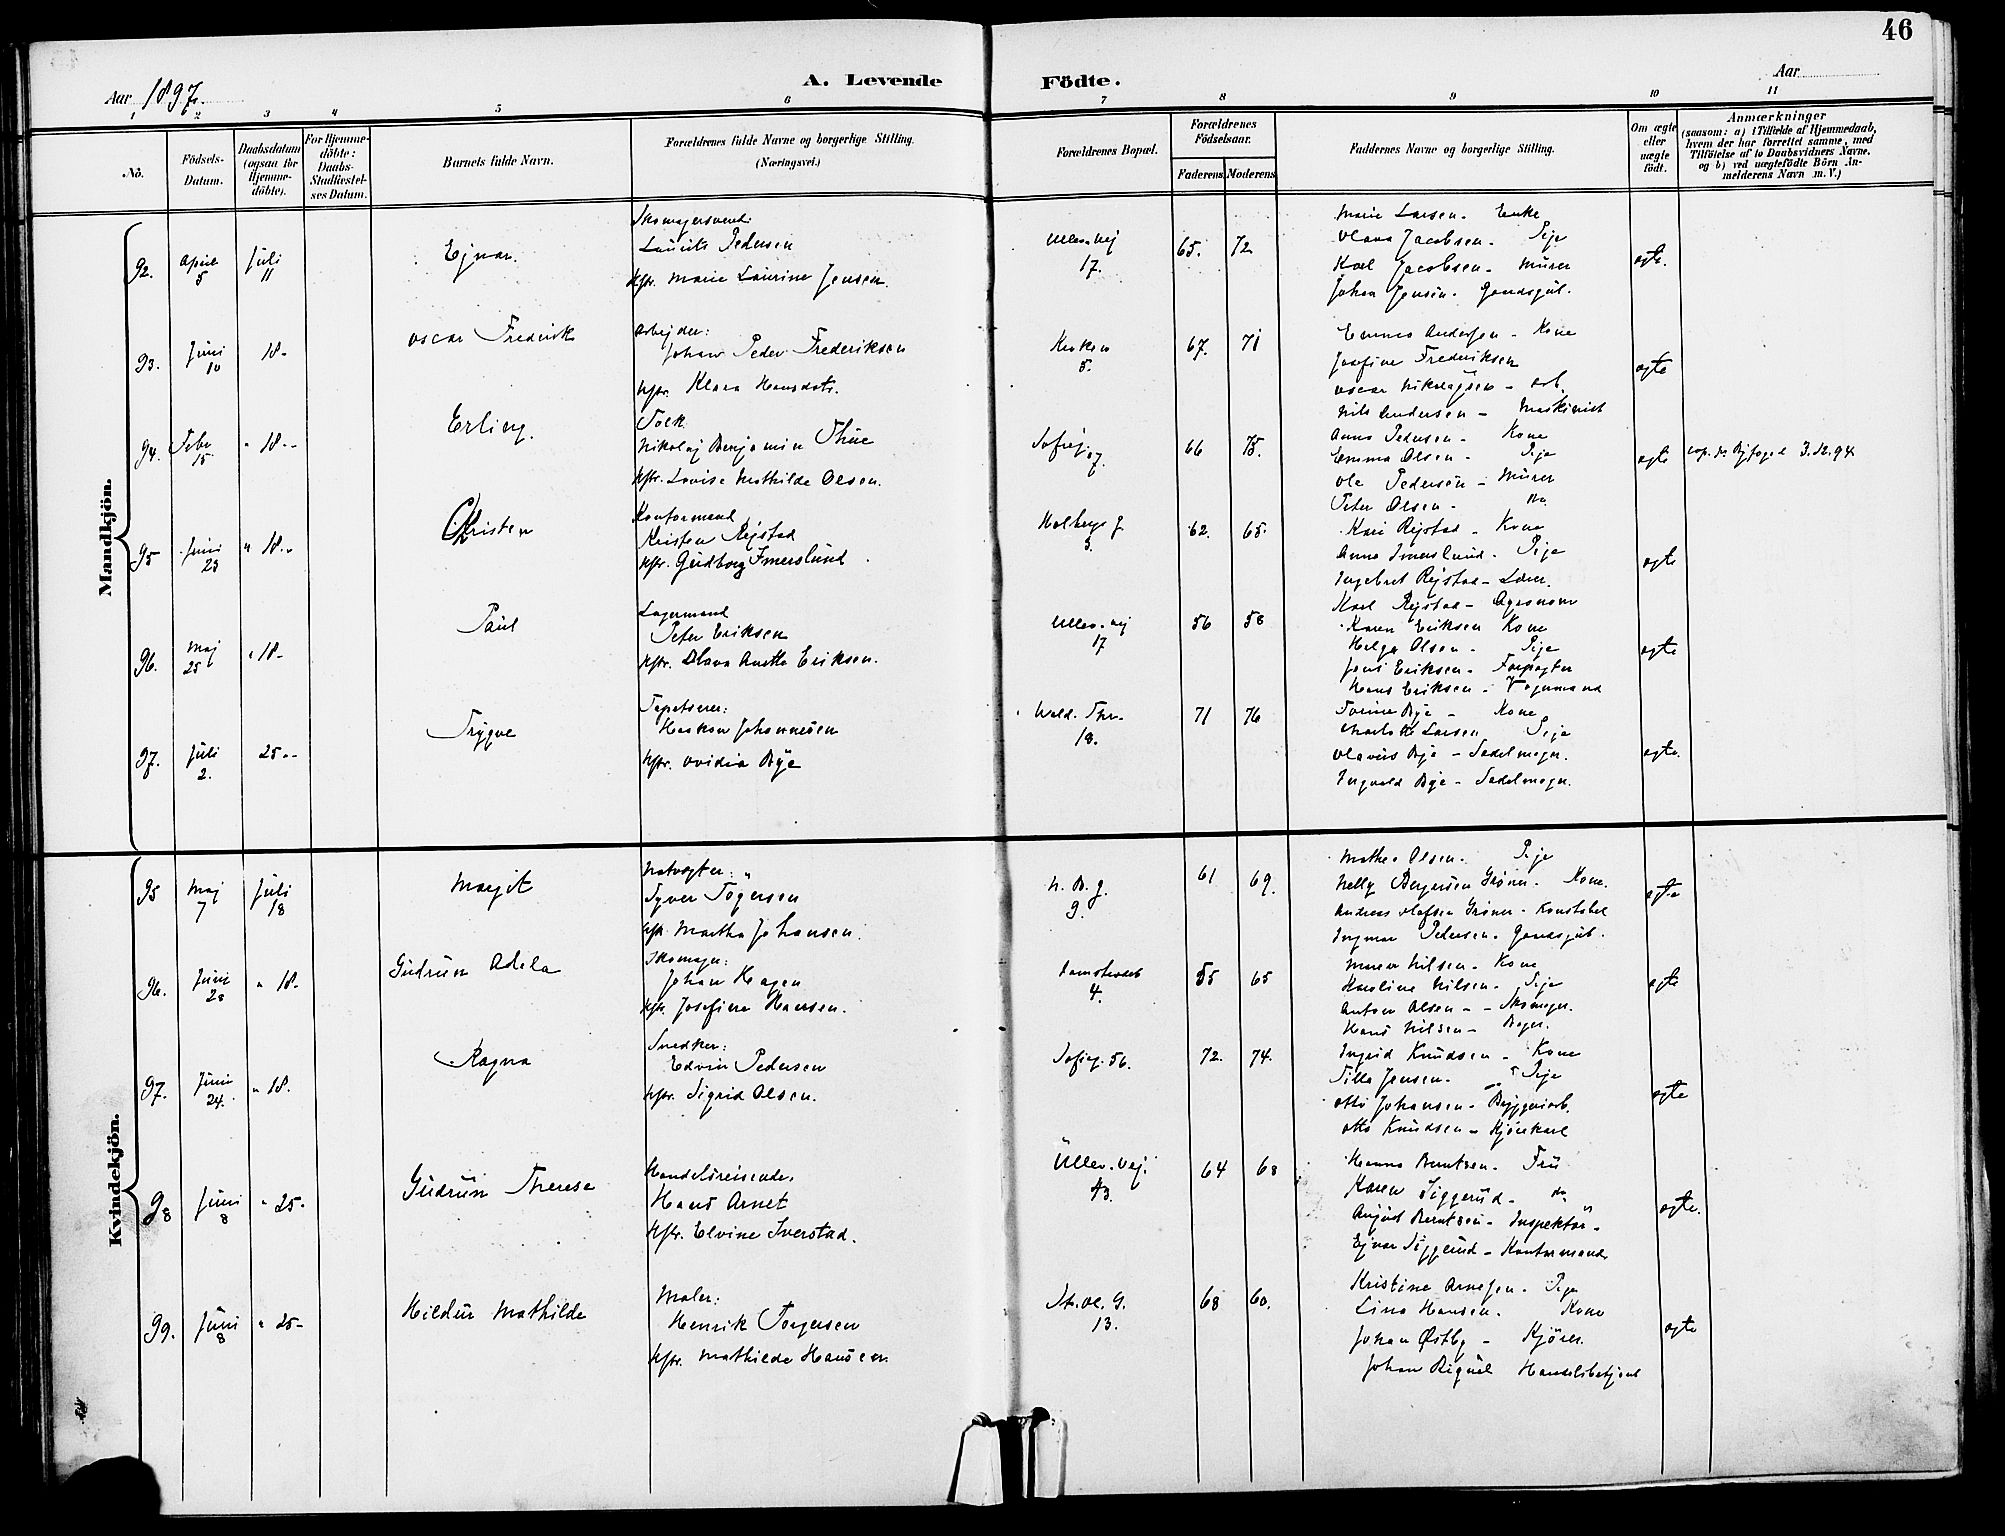 46
Aar 1897.
A. Levende Födte.
Aar
1 2 3 4 5 6 7 8 9 10 11
No.
Födsels-Datum.
Daabsdatum (ogsaa for Hjemme-döbte).
For Hjemme-döbte: Daabs-Stadfæstel-ses Datum.
Barnets fulde Navn.
Forældrenes fulde Navne og borgerlige Stilling. (Næringsvei.)
Forældrenes Bopæl.
Forældrenes Födselsaar.
Faderens. Moderens.
Faddernes Navne og borgerlige Stilling.
Om ægte eller uægte födt.
Anmærkninger
(saasom: a) i Tilfælde af Hjemmedaab, hvem der har forrettet samme, med Tilföielse af to Daabsvidners Navne. og b) ved uægtefödte Börn An-melderens Navn m. V.)
Mandkjön.
92. April 5 Juli 11 Ejnar.
Skomagersvend:
Laurits Pedersen
Hstr. Marie Laurine Jensen.
Ullev. vej 17. 65. 72
Marie Larsen. Enke
Olava Jacobsen. Pige
Karl Jacobsen. Murer
Johan Jensen. Gaardsgut.
ægte.
93. Juni 10 18. Oscar Fredrik
Arbejder:
Johan Peder Frederiksen
Hstr. Klara Hansdatr.
Kirkev 5. 67. 71
Emma Andersen - Kone
Josefine Frederiksen
Oscar Nikolaysen - Arb.
Nils Andersen - Maskinist
ægte
94. Febr 15. " 18. Erling.
Tolk
Nikolaj Benjamin Thue
Hstr. Lovise Mathilde Olsen.
Sofieg. 66 75.
Anna Pedersen - Kone
Emma Olsen - Pige
Ole Pedersen - Murer
Peter Olsen - do
ægte
cop. fr. Byfoged 3.12.94
95 Juni 23 " 18. Christen
Kontormand
Kristen Rejstad
Hstr. Gudborg Imerslund
Holbergs g 3. 62. 65.
Kari Rejstad - Kone
Anna Imerslund. Pige
Ingebret Rejstad - Lærer.
Karl Rejstad - Agronom
ægte
96. Maj 25 " 18. Paul
Lagermand
Peter Eriksen
Hstr. Olava Anette Eriksen.
Ullev. vej 17 56 58
Karen Eriksen Kone
Helga Olsen - Pige
Jens Eriksen - Forpagter
Hans Eriksen - Vognmand
ægte
97. Juli 2. 25. Trygve
Tapetserer:
Haakon Johannesen
Hstr. Ovidia Bye
Wald. Thr. 18. 71 76
Torine Bye - Kone
Charlotte Larsen Pige
Olavus Bye - Sadelmager.
Ingvald Bye - Sadelmager.
ægte.
Kvindekjön.
95 Maj 7 Juli 18 Margit
Natvægter:
Syver Togersen
Hstr. Martha Johansen.
N. B. g. 9. 61 69.
Mathea Olsen. Pige
Nelly Bergersen Gröner. Kone.
Andreas Olafsen Gröner - Konstabel
Ingmar Pedersen. Gaardsgut.
ægte
96. Juni 28 " 18. Gudrun Adela
Skomager:
Johan Hagen
Hstr. Josefine Hansen.
Damstredet 4. 55 65
Maren Nilsen - Kone
Karoline Nilsen - Pige
Anton Olsen - Skomager.
Hans Nilsen - Bager.
ægte
97. Juni 24. " 18. Ragna
Snedker:
Edvin Pedersen
Hstr. Sigrid Olsen.
Sofieg. 56. 72. 74.
Ingrid Knudsen - Kone
Tilla Jensen. Pige
Otto Johansen - Bryggeriarb.
Otto Knudsen - Kjörekarl
ægte
98 Juni 8 " 25. Gudrun Therese
Handelsreisende.
Hans Arnet
Hstr. Elvine Iverstad.
Ullev. vej. 64 68
Hanna Berntsen. Fru
Karen Siggerud - do
August Berntsen - Inspektör.
Ejnar Siggerud - Kontormand
ægte.
99. Juni 8 " 25. Hildur Mathilde
Maler:
Henrik Torgersen
Hstr. Mathilde Hansen
St. Ol. G. 13. 68 60.
Kristine Arnesen. Pige
Lina Hansen. Kone
Johan Østby - Kjörer.
Johan Handelsbetjent
ægte